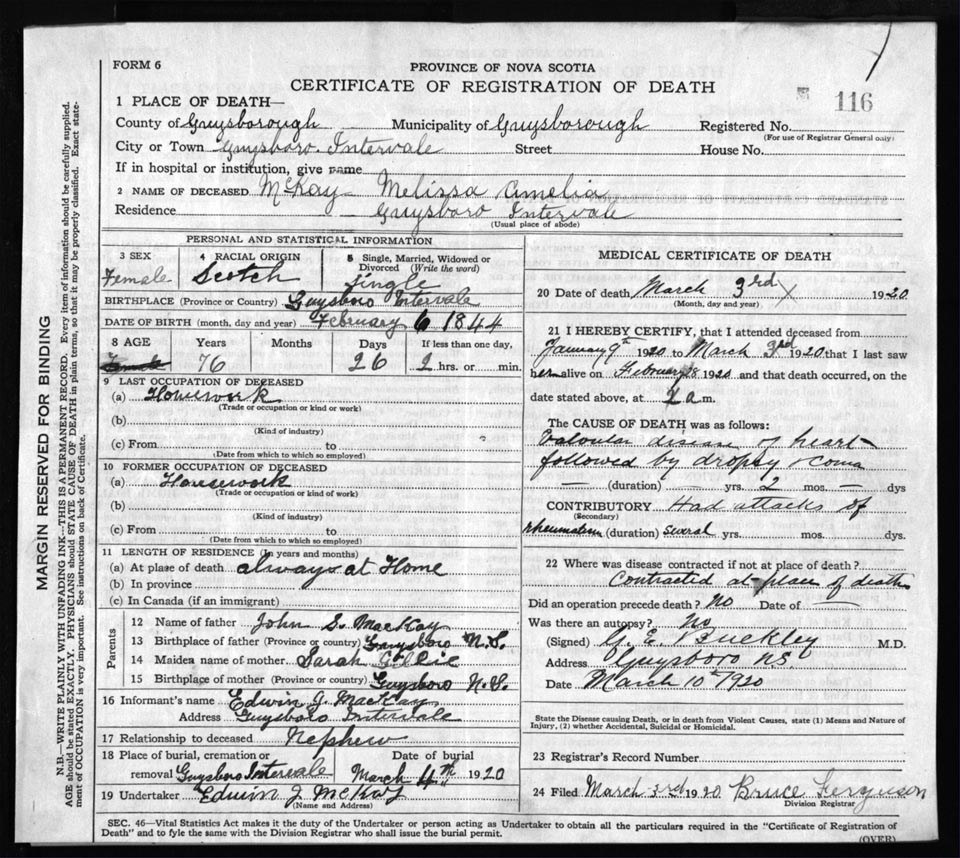 FORM 6
PROVINCE OF NOVA SCOTIA
CERTIFICATE OF REGISTRATION OF DEATH
116
1 PLACE OF DEATH—
County of Guysborough Municipality of Guysborough Registered No.
(For use of Registrar General only)
City or Town Guysboro Intervale Street House No.
If in hospital or institution, give name
2 NAME OF DECEASED McKay — Melissa Amelia
Residence — Guysboro Intervale
(Usual place of abode)
PERSONAL AND STATISTICAL INFORMATION
3 SEX 4 RACIAL ORIGIN 5 Single, Married, Widowed or Divorced (Write the word)
Female Scotch Single
BIRTHPLACE (Province or Country) Guysboro Intervale
DATE OF BIRTH (month, day and year) February 6 1844
8 AGE Years Months Days If less than one day,
76 26 2 hrs. or min.
9 LAST OCCUPATION OF DECEASED
(a) Homework
(Trade or occupation or kind or work)
(b)
(Kind of industry)
(c) From to
(Date from which to which so employed)
10 FORMER OCCUPATION OF DECEASED
(a) Housework
(Trade or occupation or kind or work)
(b)
(Kind of industry)
(c) From to
(Date from which to which so employed)
11 LENGTH OF RESIDENCE (In years and months)
(a) At place of death always at Home
(b) In province
(c) In Canada (if an immigrant)
Parents
12 Name of father John S. MacKay
13 Birthplace of father (Province or country) Guysboro N.S.
14 Maiden name of mother Sarah Gillie
15 Birthplace of mother (Province or country) Guysboro N.S.
16 Informant's name Edwin J. MacKay
Address Guysboro Intervale
17 Relationship to deceased Nephew
18 Place of burial, cremation or Date of burial
removal Guysboro Intervale March 4th 1920
19 Undertaker Edwin J McKay
(Name and Address)
MEDICAL CERTIFICATE OF DEATH
20 Date of death March 3rd 1920
(Month, day and year)
21 I HEREBY CERTIFY, that I attended deceased from
January 9th 1920 to March 3rd 1920 that I last saw
her alive on February 28 1920 and that death occurred, on
date stated above, at 2 a m.
The CAUSE OF DEATH was as follows:
Valvular disease of heart
followed by dropsy & coma
— (duration) — yrs. 2 mos. — dys
CONTRIBUTORY Had attacks of
(Secondary)
rheumatism (duration) several yrs. mos. dys.
22 Where was disease contracted if not at place of death?
Contracted at place of death
Did an operation precede death? No Date of —
Was there an autopsy? No
(Signed) G. E. Buckley M.D.
Address Guysboro NS
Date March 10th 1920
State the Disease causing Death, or in death from Violent Causes, state (1) Means and Nature of
Injury, (2) whether Accidental, Suicidal or Homicidal.
23 Registrar's Record Number
24 Filed March 3rd 1920 Bruce Ferguson
Division Registrar
SEC. 46—Vital Statistics Act makes it the duty of the Undertaker or person acting as Undertaker to obtain all the particulars required in the "Certificate of Registration of
Death" and to fyle the same with the Division Registrar who shall issue the burial permit.
(OVER)
MARGIN RESERVED FOR BINDING
N.B.—WRITE PLAINLY WITH UNFADING INK—THIS IS A PERMANENT RECORD. Every item of information should be carefully supplied.
AGE should be stated EXACTLY. PHYSICIANS should STATE CAUSE OF DEATH in plain terms, so that it may be properly classified. Exact state-
ment of OCCUPATION is very important. See instructions on back of Certificate.